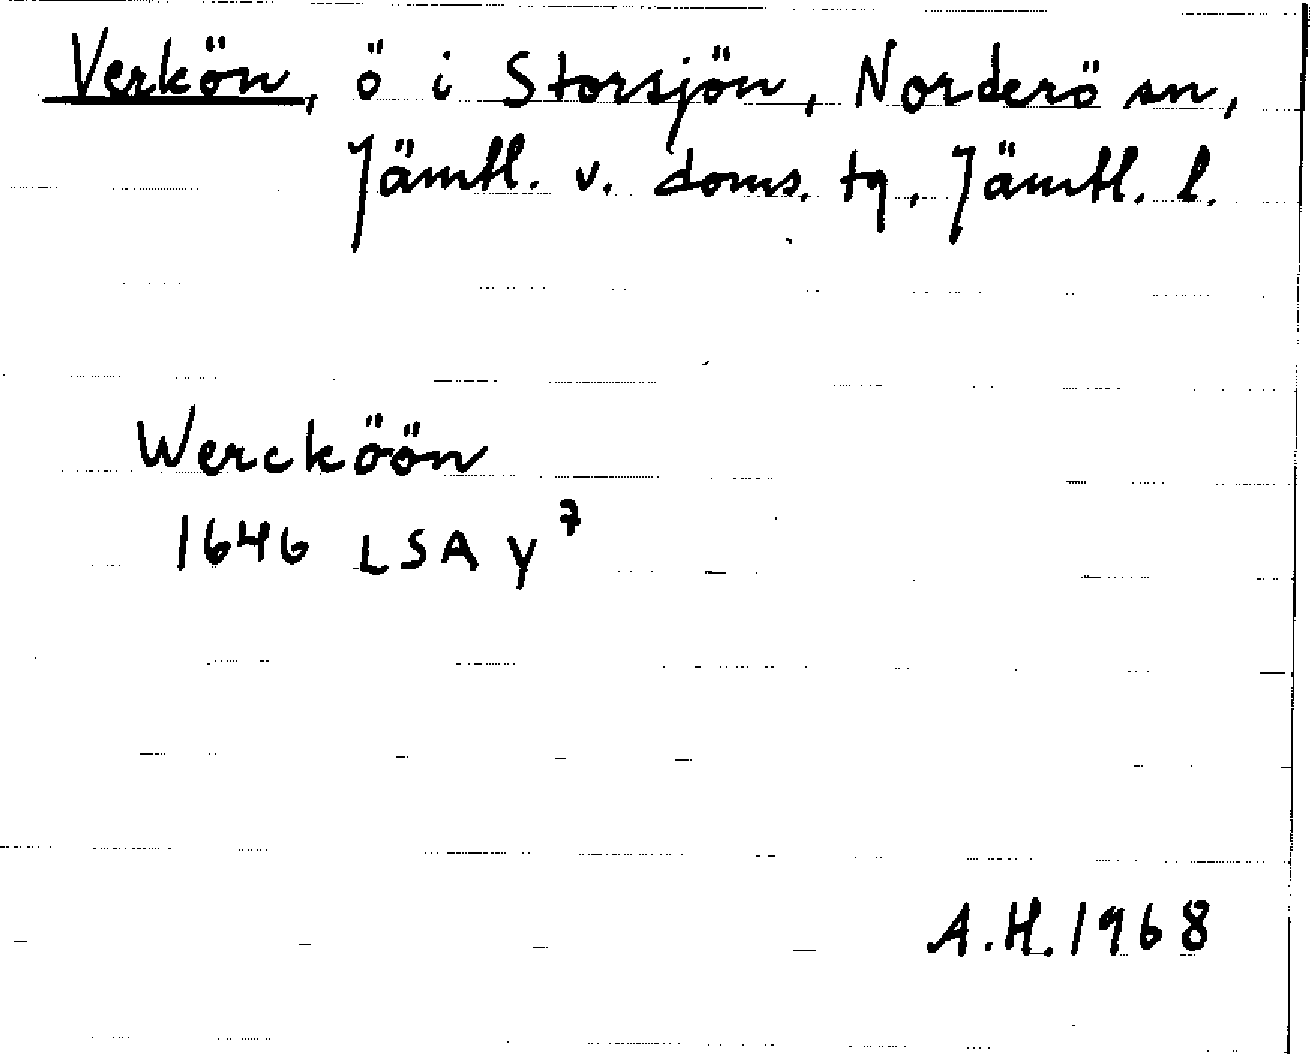 Verkön, ö i Storsjön, Norderö sn,
Jämtl. v. doms. tg, Jämtl. l.
Wercköön
1646 LSA Y⁷
A.H. 1968